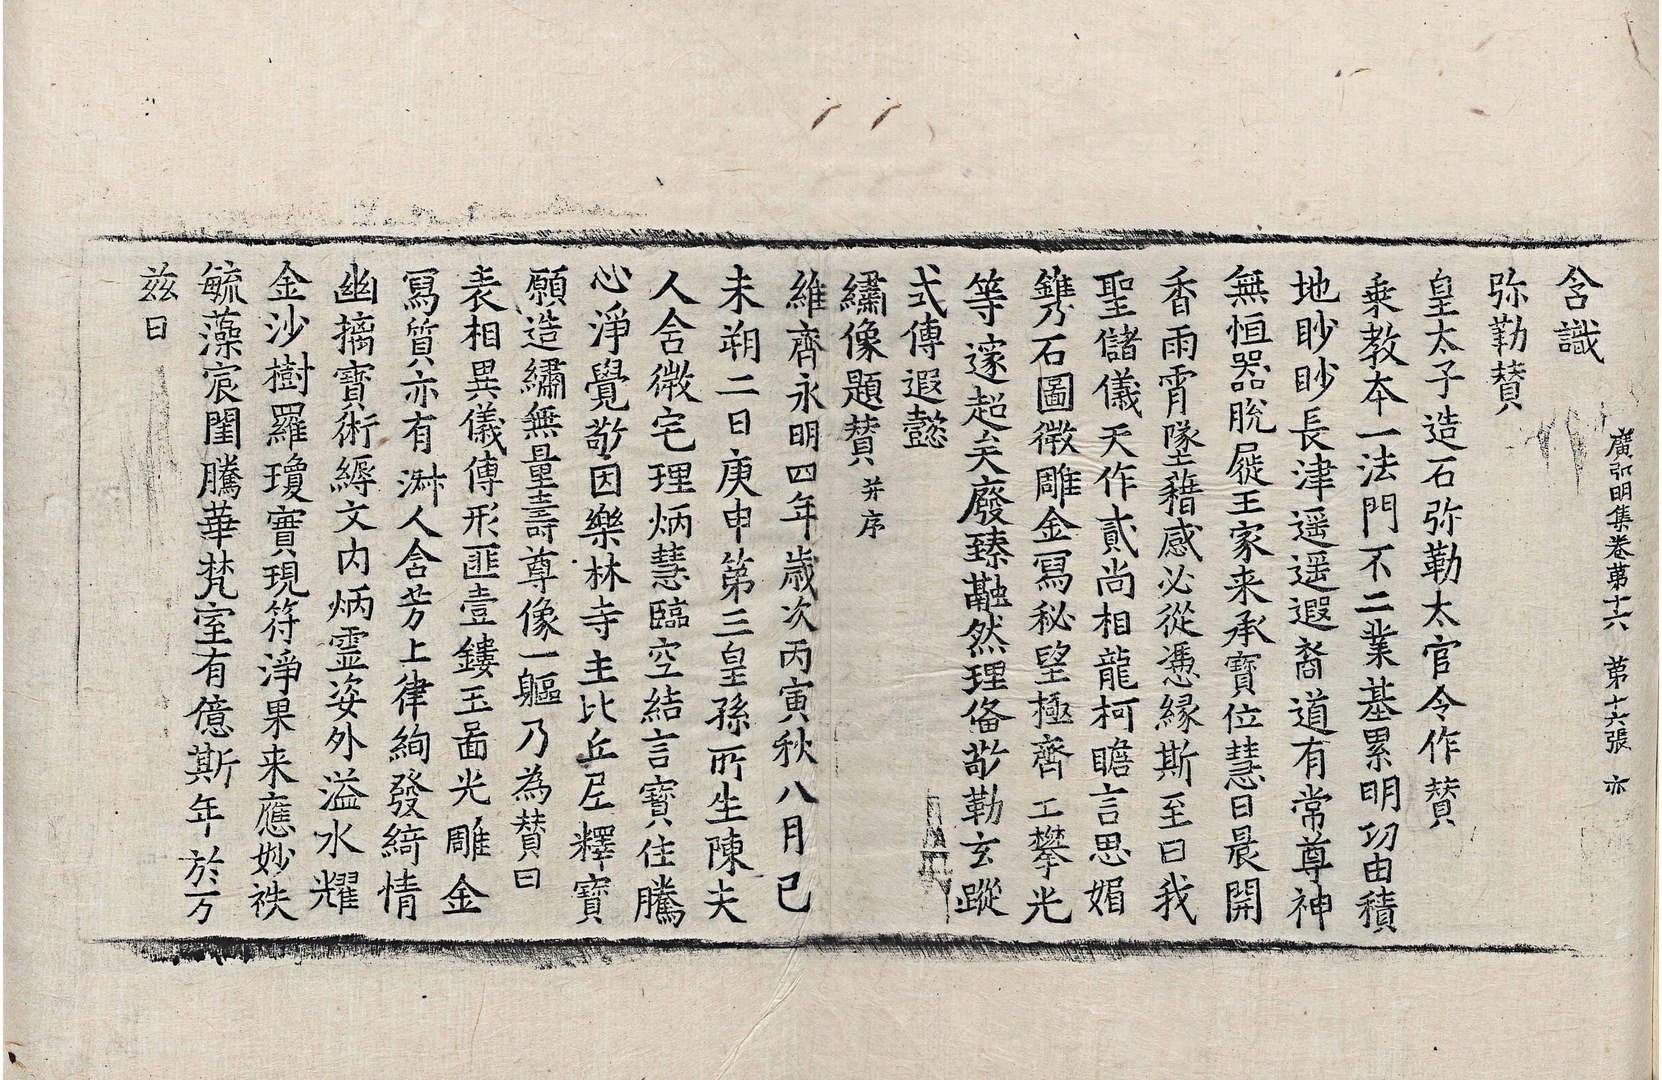 廣弘明集卷第十六 第十六張 亦
含識
弥勒賛
皇太子造石弥勒太官令作賛
乘教本一法門不二業基累明功由積
地眇眇長津遥遥遐裔道有常尊神
無恒器脫屣王家来承寶位慧日晨開
香雨霄墜藉感必從憑緣斯至曰我
聖儲儀天作貳尚相龍柯瞻言思媚
鐫乃石圖徴雕金冩秘望極齊工攀光
等邃超矣廢臻融然理俻敬勒玄蹤
式傳遐懿
繡像題賛 并序
維齊永明四年歲次丙寅秋八月己
未朔二日庚申第三皇孫所生陳夫
人含微宅理炳慧臨空結言寶住騰
心淨覺敬因樂林寺主比丘尼釋寶
願造繡無量壽尊像一軀乃為賛曰
表相異儀傳形匪壹鏤玉啚光雕金
冩質亦有淋人含芳上律絢發綺情
幽摛寶術縟文內炳靈姿外溢水耀
金沙樹羅瓊實現符淨果来應妙袟
毓藻宸闈騰華梵室有億斯年於万
兹日